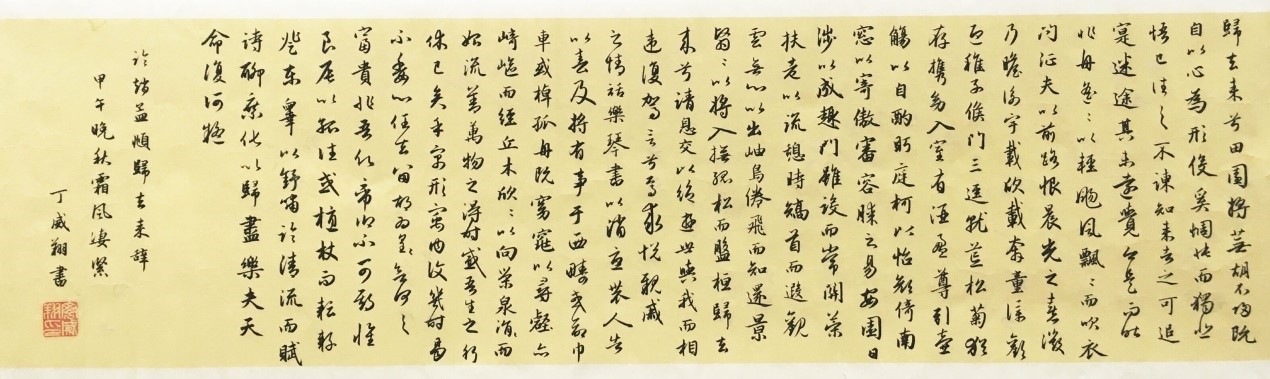 歸去来兮田園將蕪胡不歸既
自以心為形役奚惆悵而獨悲
悟已往之不諫知来者之可追
寔迷途其未遠覺今是而昨
非舟遙々以輕颺風飄々而吹衣
問征夫以前路恨晨光之熹微
乃瞻衡宇載欣載奔童僕歡
迎稚子候門三逕就荒松菊猶
存携幼入室有酒盈尊引壺
觴以自酌眄庭柯以怡顏倚南
窓以寄傲審容膝之易安園日
涉以成趣門雖設而常關策
扶老以流憩時矯首而遐觀
雲無心以出岫鳥倦飛而知還景
翳々以將入撫孤松而盤桓歸去
来兮請息交以絕遊世與我而相
違復駕言兮焉求悅親戚
之情話樂琴書以消憂農人告
以春及將有事于西疇或命巾
車或棹孤舟既窈窕以尋壑亦
崎嶇而經丘木欣々以向榮泉涓而
始流善萬物之得時感吾生之行
休已矣乎寓形宇内復幾時曷
不委心任去留胡為何之
富貴非吾願帝鄉不可期懷
良辰以孤往或植杖而耘耔
登東皋以舒嘯臨清流而賦
詩聊乘化以歸盡樂夫天
命復何疑
臨趙孟頫歸去来辭
甲午晚秋霜風凄緊
丁威翔書